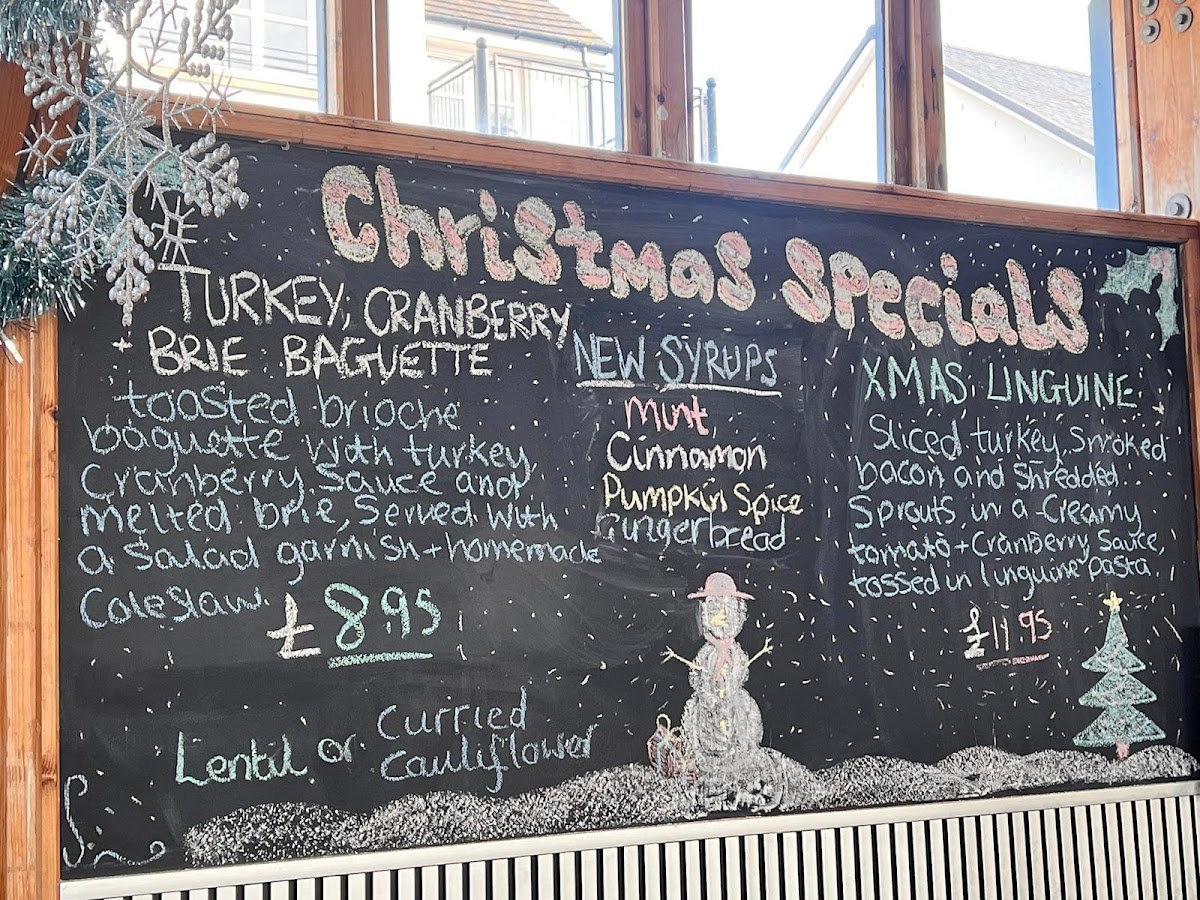 Christmas Specials
TURKEY, CRANBERRY
+ BRIE BAGUETTE
toasted brioche
baguette with turkey,
Cranberry Sauce and
melted brie, Served with
a Salad garnish + homemade
Coleslaw.
£8.95
Lentil or Curried
Cauliflower
NEW SYRUPS
Mint
Cinnamon
Pumpkin Spice
Gingerbread
XMAS LINGUINE
Sliced turkey, Smoked
bacon and Shredded
Sprouts, in a Creamy
tomato + Cranberry Sauce,
tossed in linguine pasta
£11.95